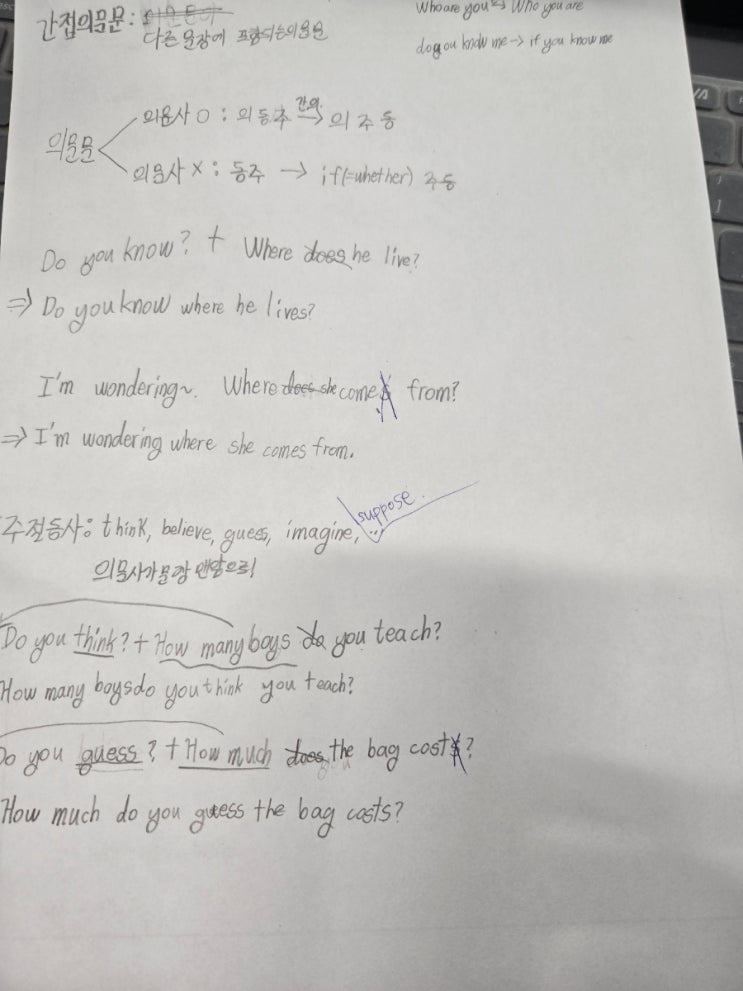 간접의문문: 의문문이
다른 문장에 포함되는의문문
Who are you ↔ Who you are
do you know me → if you know me
의문문
의문사 O : 의 동 주 간의→ 의 주 동
의문사 X : 동주 → if(=whether) 주동
Do you know? + Where does he live?
⇒ Do you know where he lives?
I'm wondering~. Where does she comes from?
⇒ I'm wondering where she comes from.
think, believe, guess, imagine, suppose.
의문사가 문장 맨앞으로!
Do you think? + How many boys do you teach?
How many boys do you think you teach?
Do you guess? + How much does the bag costs?
How much do you guess the bag costs?